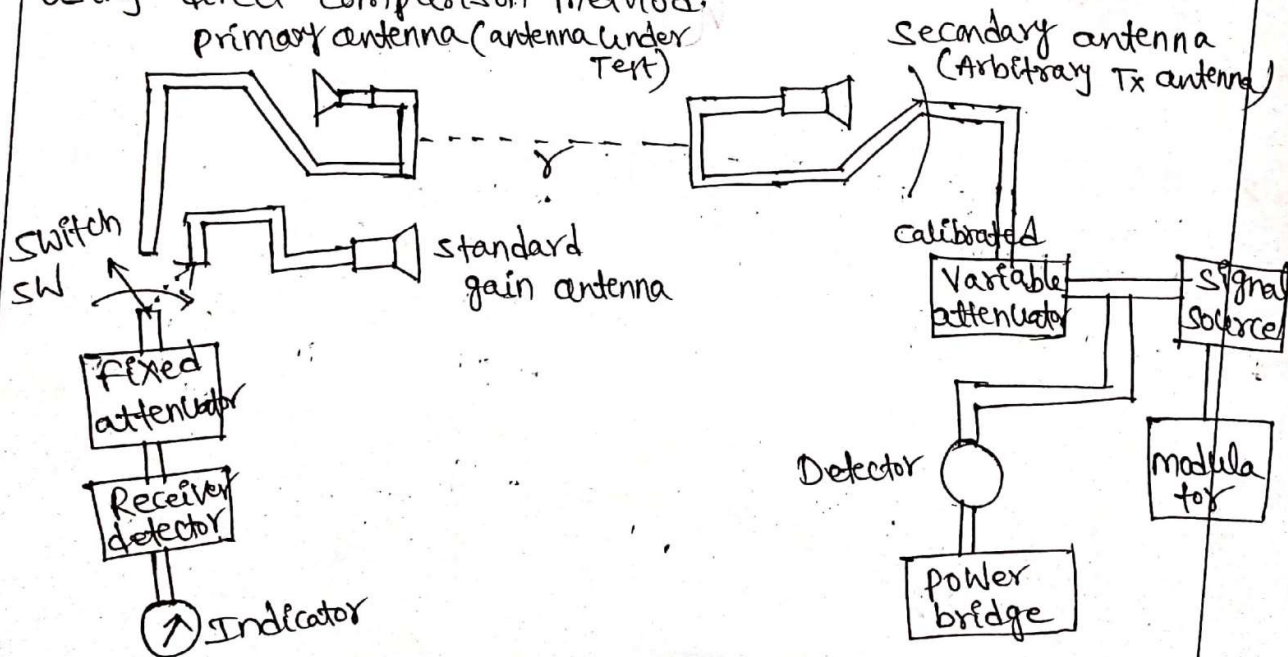 using direct comparison method.
primary antenna (antenna under
Test)
Secondary antenna
(Arbitrary Tx antenna)
r
Switch
SW
standard
gain antenna
calibrated
Variable
attenuator
signal
source
fixed
attenuator
Detector
modula
tor
Receiver
detector
power
bridge
Indicator